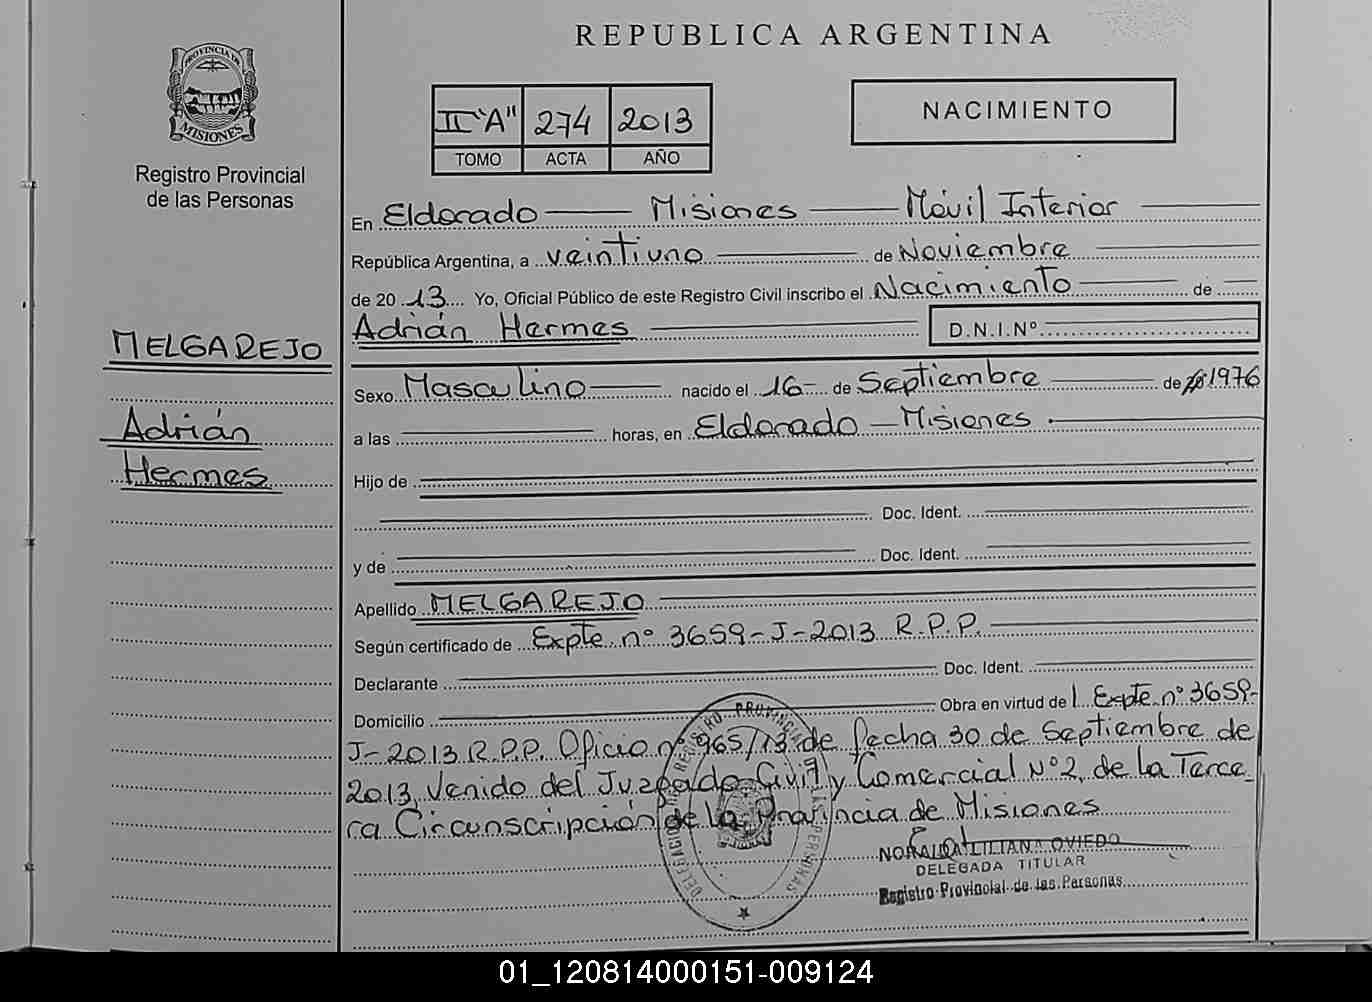 REPUBLICA ARGENTINA
PROVINCIA DE
MISIONES
Registro Provincial
de las Personas
II "A" 274 2013
TOMO ACTA AÑO
NACIMIENTO
En Eldorado Misiones Móvil Interior
República Argentina, a veintiuno de Noviembre
de 2013 Yo, Oficial Público de este Registro Civil inscribo el Nacimiento de
Adrián Hermes D.N.I.Nº
MELGAREJO
Adrián
Hermes
Sexo Masculino nacido el 16 de Septiembre de 1976
a las horas, en Eldorado - Misiones
Hijo de
Doc. Ident.
y de Doc. Ident.
Apellido MELGAREJO
Según certificado de Expte. nº 3659-J-2013 R.P.P.
Declarante Doc. Ident.
Domicilio Obra en virtud del Expte. nº 3659-
J-2013 R.P.P. Oficio nº 965/13 de fecha 30 de Septiembre de
2013, Venido del Juzgado Civil y Comercial Nº 2, de la Terce-
ra Circunscripción de la Provincia de Misiones
LILIANA OVIEDO
DELEGADA TITULAR
Registro Provincial de las Personas
01_120814000151-009124